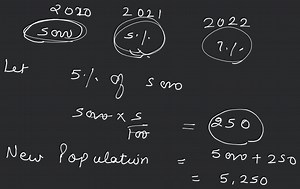 2020 2021 2022
5000 5% ?%
Let
5% of 5000
5000 × 5/100 = 250
New Population = 5000 + 250
= 5,250